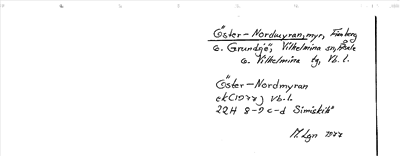 Öster-Nordmyran, myr,
o. Grundsjö, Vilhelmina sn, Åsele
o. Vilhelmina tg, Vb. l.
Öster-Nordmyran
ek (1977) Vb. l.
22H 8-9 c-d Simiskilä
M. Lgn 1977